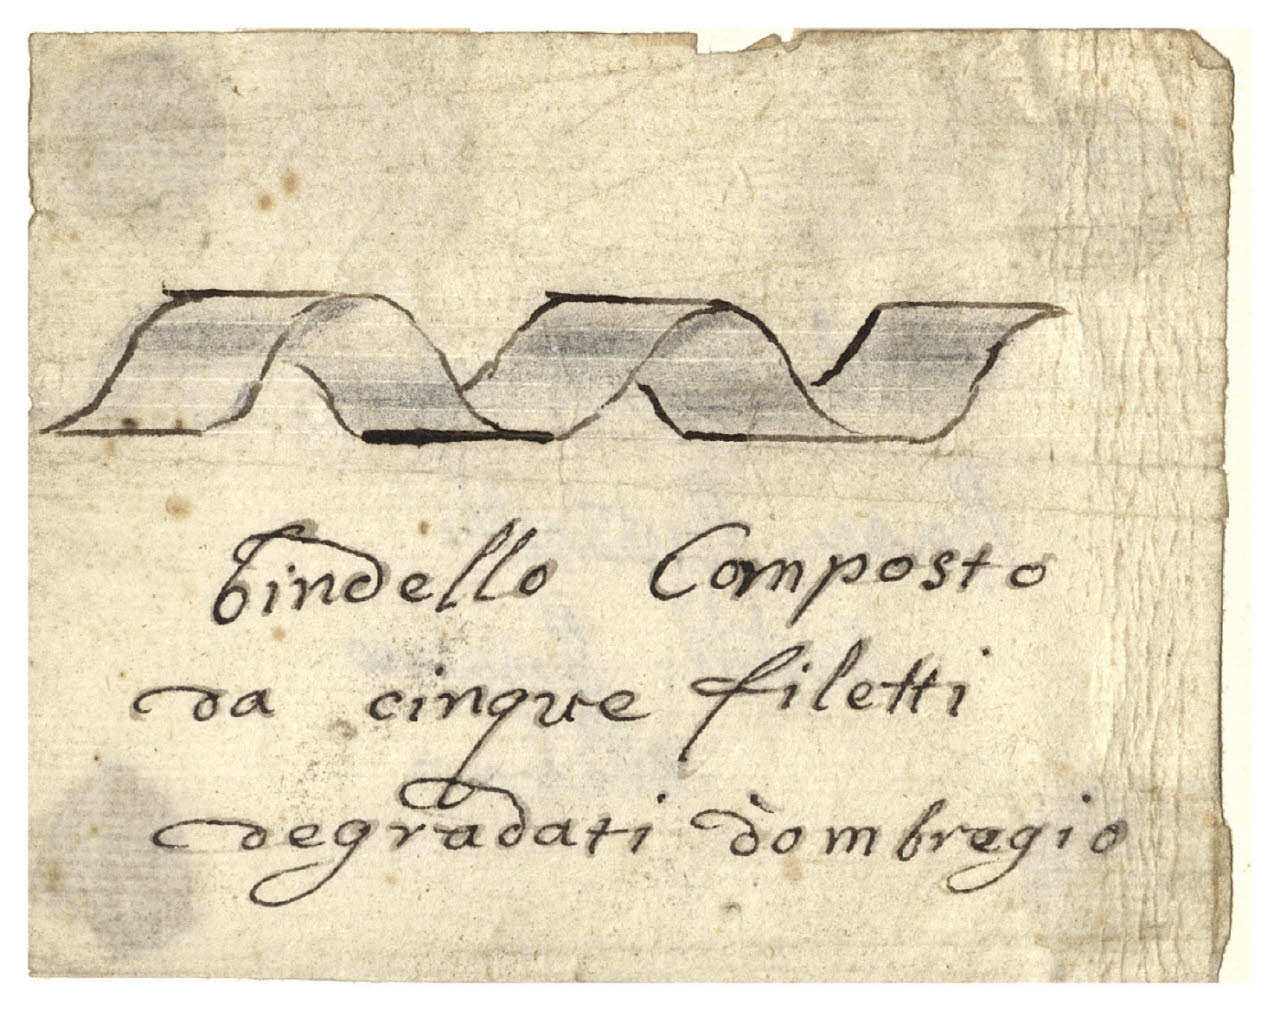 bindello Composto
da cinque filetti
degradati dombregio